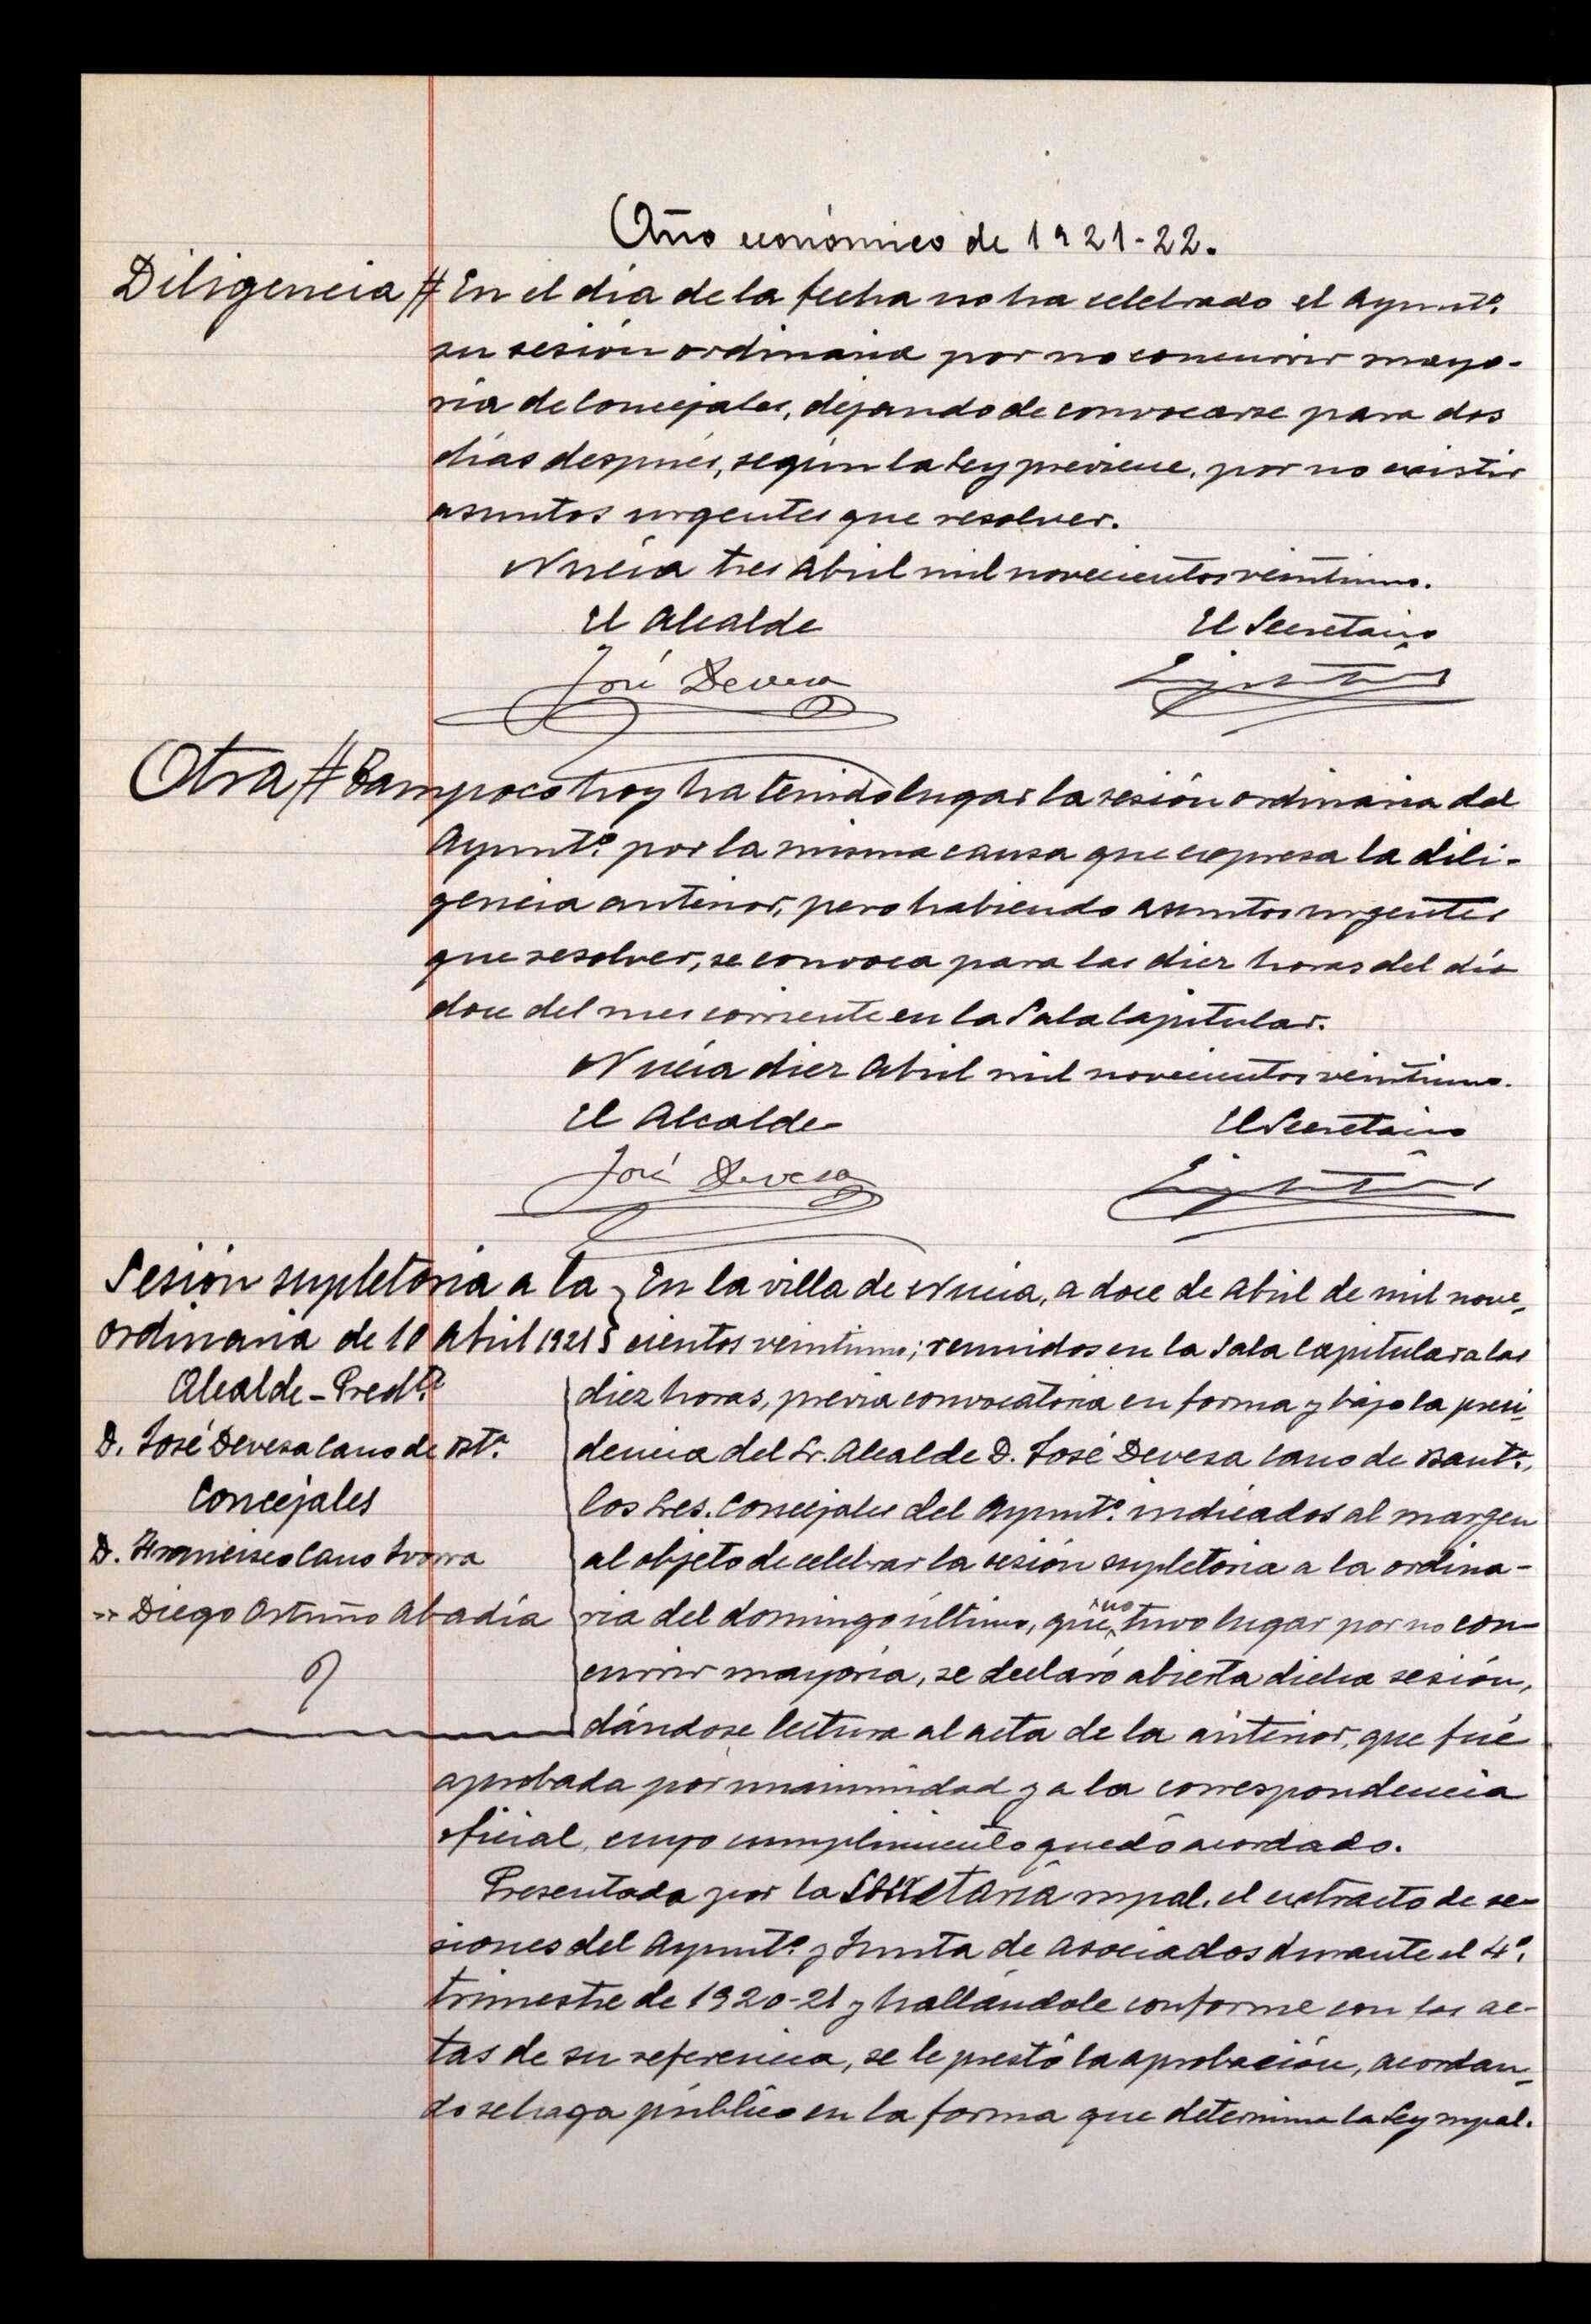 Año económico de 1921-22.
Diligencia # En el día de la fecha no ha celebrado el Ayuntº.
su sesión ordinaria por no concurrir mayo-
ria de Concejales, dejando de convocarse para dos
días después, según la Ley previene, por no existir
asuntos urgentes que resolver.
Nucía tres Abril mil novecientos veintiuno.
El Alcalde El Secretario
José Devesa
Otra # Tampoco hoy ha tenido lugar la sesión ordinaria del
Ayuntº. por la misma causa que expresa la dili-
gencia anterior, pero habiendo asuntos urgentes
que resolver, se convoca para las diez horas del día
doce del mes corriente en la Sala Capitular.
Nucía diez Abril mil novecientos veintiuno.
El Alcalde El Secretario
José Devesa
Sesión supletoria a la
ordinaria de 10 Abril 1921
Alcalde-Presdte.
D. José Devesa Cano de Btª.
Concejales
D. Francisco Cano Ivorra
" Diego Ortuño Abadía
En la villa de Nucia, a doce de Abril de mil nove-
cientos veintiuno; reunidos en la Sala Capitular a las
diez horas, previa convocatoria en forma y bajo la presi-
dencia del Sr. Alcalde D. José Devesa Cano de Bautª.,
los Sres. Concejales del Ayuntº. indicados al margen
al objeto de celebrar la sesión supletoria a la ordina-
ria del domingo último, que no tuvo lugar por no con-
currir mayoría, se declaró abierta dicha sesión,
dándose lectura al acta de la anterior, que fué
aprobada por unanimidad y a la correspondencia
oficial, cuyo cumplimiento quedó acordado.
Presentada por la Secretaría mpal. el extracto de se-
siones del Ayuntº. y Junta de Asociados durante el 4º.
trimestre de 1920-21 y hallándole conforme con las ac-
tas de su referencia, se le prestó la aprobación, acordan-
do se haga público en la forma que determina la Ley mpal.